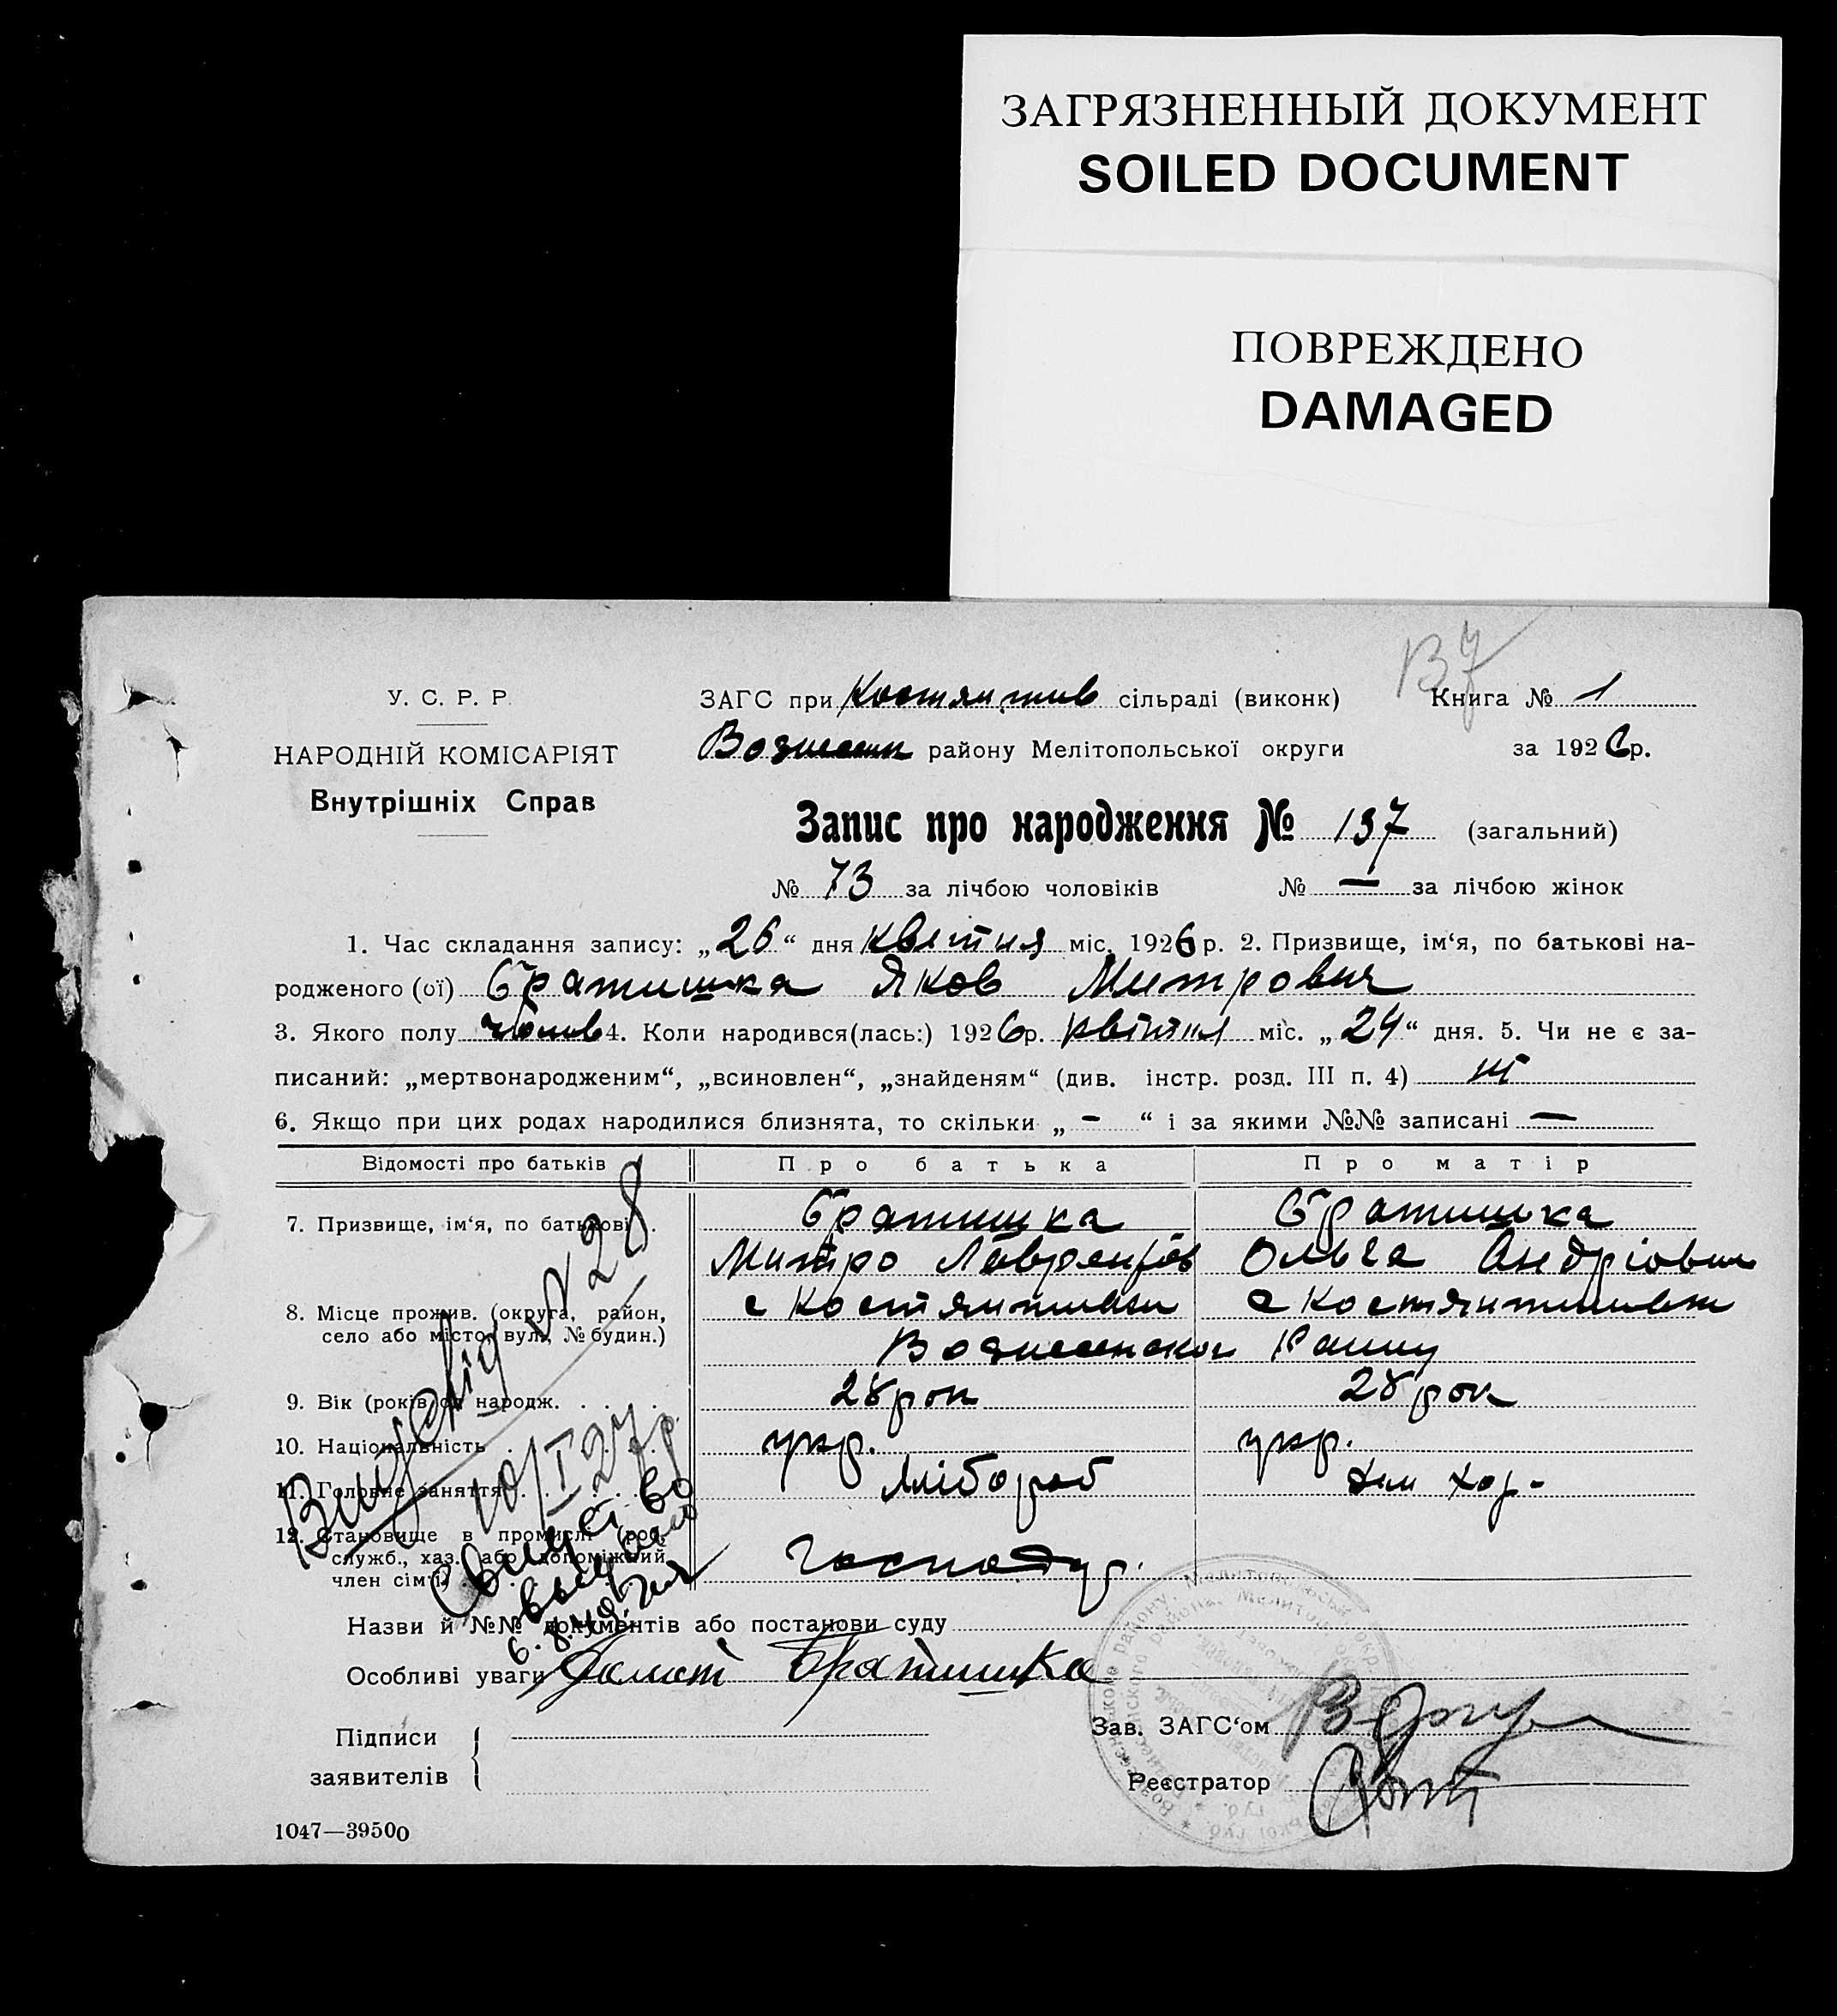 ЗАГРЯЗНЕННЫЙ ДОКУМЕНТ
SOILED DOCUMENT
ПОВРЕЖДЕНО
DAMAGED
В7
У. С. Р. Р.
НАРОДНІЙ КОМІСАРІЯТ
Внутрішніх Справ
ЗАГС при Костянтнив сільраді (виконк) Книга № 1
Вознесен району Мелітопольської округи за 1926 р.
Запис про народження № 137 (загальний)
№ 73 за лічбою чоловіків № — за лічбою жінок
1. Час складання запису: „26“ дня квітня міс. 1926 р. 2. Призвище, ім‘я, по батькові на-
родженого (ої) Братишка Яков Митрович
3. Якого полу чолов 4. Коли народився(лась:) 1926 р. квітня міс. „24“ дня. 5. Чи не є за-
писаний: „мертвонародженим“, „всиновлен“, „знайденям“ (див. інстр. розд. III п. 4)
6. Якщо при цих родах народилися близнята, то скільки „ - “ і за якими №№ записані —
Відомості про батьків Про батька Про матір
7. Призвище, ім‘я, по батькові Братишка Братишка
Митро Лаврентіов Ольга Андріовна
8. Місце прожив. (округа, район,
село або місто, вул., № будин.)
с Костянтинівки с Костянтинівки
Вознесенског Раину
9. Вік (років од народж. 28 рок 28 рок
10. Національність укр. укр.
11. Головне заняття Хлібороб дом хоз.
12. Становище в промислі (роб.
служб., хаз. або допоміжний
член сім‘ї
господар.
Витяг № 28
10/I 27р.
Свидетво
Назви й №№ документів або постанови суду
Особливі уваги Братишка
Підписи
заявителів
Зав. ЗАГС‘ом
Реєстратор
1047—39500